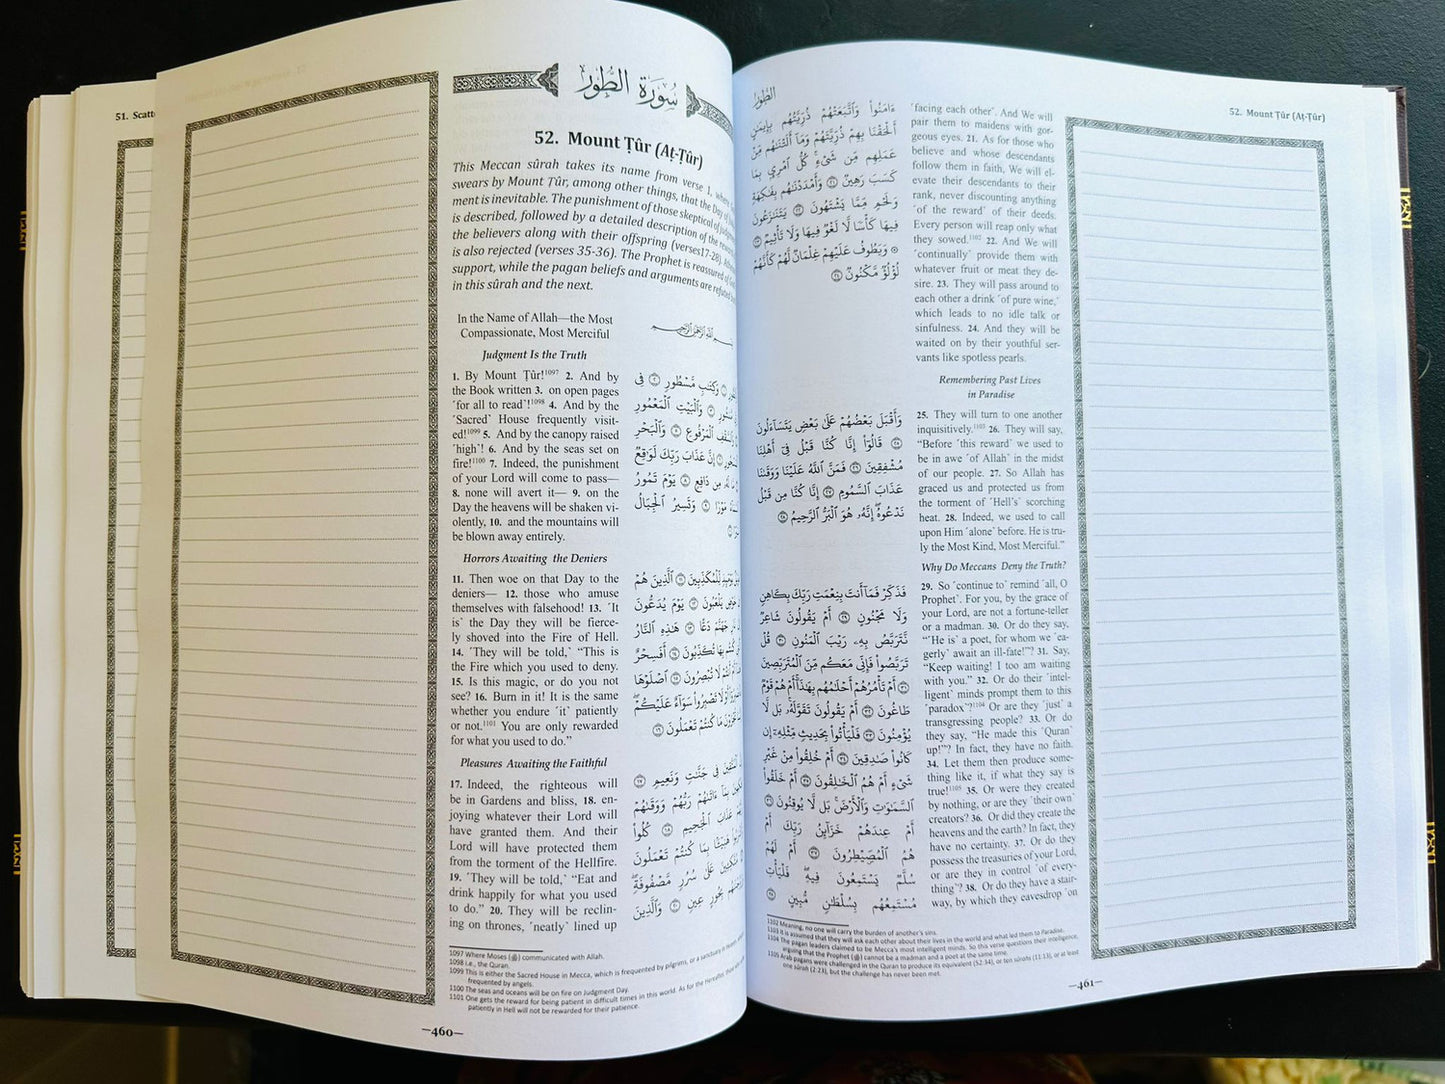 51. Scatt
سُورَةُ الطُّورِ
52. Mount Ṭûr (Aṭ-Ṭûr)
This Meccan sûrah takes its name from verse 1, where
swears by Mount Ṭûr, among other things, that the Day of Judg-
ment is inevitable. The punishment of those skeptical of judgment
is described, followed by a detailed description of the reward
the believers along with their offspring (verses17-28).
is also rejected (verses 35-36). The Prophet is reassured of
support, while the pagan beliefs and arguments are refuted
in this sûrah and the next.
In the Name of Allah—the Most
Compassionate, Most Merciful
بِسْمِ اللَّهِ الرَّحْمَٰنِ الرَّحِيمِ
Judgment Is the Truth
1. By Mount Ṭûr!1097 2. And by
the Book written 3. on open pages
˹for all to read˺!1098 4. And by the
˹Sacred˺ House frequently visit-
ed!1099 5. And by the canopy raised
˹high˺! 6. And by the seas set on
fire!1100 7. Indeed, the punishment
of your Lord will come to pass—
8. none will avert it— 9. on the
Day the heavens will be shaken vi-
olently, 10. and the mountains will
be blown away entirely.
وَكِتَٰبٍ مَّسْطُورٍ ٢ فِى
وَٱلْبَيْتِ ٱلْمَعْمُورِ
ٱلْمَرْفُوعِ ٥ وَٱلْبَحْرِ
إِنَّ عَذَابَ رَبِّكَ لَوَٰقِعٌ
مِن دَافِعٍ ٨ يَوْمَ تَمُورُ
مَوْرًا ٩ وَتَسِيرُ ٱلْجِبَالُ
Horrors Awaiting the Deniers
11. Then woe on that Day to the
deniers— 12. those who amuse
themselves with falsehood! 13. ˹It
is˺ the Day they will be fierce-
ly shoved into the Fire of Hell.
14. ˹They will be told,˺ “This is
the Fire which you used to deny.
15. Is this magic, or do you not
see? 16. Burn in it! It is the same
whether you endure ˹it˺ patiently
or not.1101 You are only rewarded
for what you used to do.”
لِّلْمُكَذِّبِينَ ١١ ٱلَّذِينَ هُمْ
يَلْعَبُونَ ١٢ يَوْمَ يُدَعُّونَ
جَهَنَّمَ دَعًّا ١٣ هَٰذِهِ ٱلنَّارُ
بِهَا تُكَذِّبُونَ ١٤ أَفَسِحْرٌ
لَا تُبْصِرُونَ ١٥ ٱصْلَوْهَا
لَا تَصْبِرُوا۟ سَوَآءٌ عَلَيْكُمْ
مَا كُنتُمْ تَعْمَلُونَ ١٦
Pleasures Awaiting the Faithful
17. Indeed, the righteous will
be in Gardens and bliss, 18. en-
joying whatever their Lord will
have granted them. And their
Lord will have protected them
from the torment of the Hellfire.
19. ˹They will be told,˺ “Eat and
drink happily for what you used
to do.” 20. They will be reclin-
ing on thrones, ˹neatly˺ lined up
فِى جَنَّٰتٍ وَنَعِيمٍ ١٧
بِمَآ ءَاتَىٰهُمْ رَبُّهُمْ وَوَقَىٰهُمْ
عَذَابَ ٱلْجَحِيمِ ١٨ كُلُوا۟
هَنِيٓـًٔۢا بِمَا كُنتُمْ تَعْمَلُونَ
عَلَىٰ سُرُرٍ مَّصْفُوفَةٍ
بِحُورٍ عِينٍ ٢٠ وَٱلَّذِينَ
1097 Where Moses (ﷺ) communicated with Allah.
1098 i.e., the Quran.
1099 This is either the Sacred House in Mecca, which is frequented by pilgrims, or a sanctuary in heaven
frequented by angels.
1100 The seas and oceans will be on fire on Judgment Day.
1101 One gets the reward for being patient in difficult times in this world. As for the Hereafter,
patiently in Hell will not be rewarded for their patience.
—460—
الطُّور
52. Mount Ṭûr (Aṭ-Ṭûr)
ءَامَنُوا۟ وَٱتَّبَعَتْهُمْ ذُرِّيَّتُهُم بِإِيمَٰنٍ
أَلْحَقْنَا بِهِمْ ذُرِّيَّتَهُمْ وَمَآ أَلَتْنَٰهُم مِّنْ
عَمَلِهِم مِّن شَىْءٍ كُلُّ ٱمْرِئٍۭ بِمَا
كَسَبَ رَهِينٌ ٢١ وَأَمْدَدْنَٰهُم بِفَٰكِهَةٍ
وَلَحْمٍ مِّمَّا يَشْتَهُونَ ٢٢ يَتَنَٰزَعُونَ
فِيهَا كَأْسًا لَّا لَغْوٌ فِيهَا وَلَا تَأْثِيمٌ ٢٣
۞ وَيَطُوفُ عَلَيْهِمْ غِلْمَانٌ لَّهُمْ كَأَنَّهُمْ
لُؤْلُؤٌ مَّكْنُونٌ ٢٤
˹facing each other˺. And We will
pair them to maidens with gor-
geous eyes. 21. As for those who
believe and whose descendants
follow them in faith, We will el-
evate their descendants to their
rank, never discounting anything
˹of the reward˺ of their deeds.
Every person will reap only what
they sowed.1102 22. And We will
˹continually˺ provide them with
whatever fruit or meat they de-
sire. 23. They will pass around to
each other a drink ˹of pure wine,˺
which leads to no idle talk or
sinfulness. 24. And they will be
waited on by their youthful ser-
vants like spotless pearls.
Remembering Past Lives
in Paradise
وَأَقْبَلَ بَعْضُهُمْ عَلَىٰ بَعْضٍ يَتَسَآءَلُونَ
٢٥ قَالُوٓا۟ إِنَّا كُنَّا قَبْلُ فِىٓ أَهْلِنَا
مُشْفِقِينَ ٢٦ فَمَنَّ ٱللَّهُ عَلَيْنَا وَوَقَىٰنَا
عَذَابَ ٱلسَّمُومِ ٢٧ إِنَّا كُنَّا مِن قَبْلُ
نَدْعُوهُ إِنَّهُۥ هُوَ ٱلْبَرُّ ٱلرَّحِيمُ ٢٨
25. They will turn to one another
inquisitively.1103 26. They will say,
“Before ˹this reward˺ we used to
be in awe ˹of Allah˺ in the midst
of our people. 27. So Allah has
graced us and protected us from
the torment of ˹Hell’s˺ scorching
heat. 28. Indeed, we used to call
upon Him ˹alone˺ before. He is tru-
ly the Most Kind, Most Merciful.”
Why Do Meccans Deny the Truth?
فَذَكِّرْ فَمَآ أَنتَ بِنِعْمَتِ رَبِّكَ بِكَاهِنٍ
وَلَا مَجْنُونٍ ٢٩ أَمْ يَقُولُونَ شَاعِرٌ
نَّتَرَبَّصُ بِهِۦ رَيْبَ ٱلْمَنُونِ ٣٠ قُلْ
تَرَبَّصُوا۟ فَإِنِّى مَعَكُم مِّنَ ٱلْمُتَرَبِّصِينَ
٣١ أَمْ تَأْمُرُهُمْ أَحْلَٰمُهُم بِهَٰذَآ أَمْ هُمْ قَوْمٌ
طَاغُونَ ٣٢ أَمْ يَقُولُونَ تَقَوَّلَهُۥ بَل لَّا
يُؤْمِنُونَ ٣٣ فَلْيَأْتُوا۟ بِحَدِيثٍ مِّثْلِهِۦٓ إِن
كَانُوا۟ صَٰدِقِينَ ٣٤ أَمْ خُلِقُوا۟ مِنْ غَيْرِ
شَىْءٍ أَمْ هُمُ ٱلْخَٰلِقُونَ ٣٥ أَمْ خَلَقُوا۟
ٱلسَّمَٰوَٰتِ وَٱلْأَرْضَ بَل لَّا يُوقِنُونَ ٣٦
أَمْ عِندَهُمْ خَزَآئِنُ رَبِّكَ أَمْ
هُمُ ٱلْمُصَۣيْطِرُونَ ٣٧ أَمْ لَهُمْ
سُلَّمٌ يَسْتَمِعُونَ فِيهِ فَلْيَأْتِ
مُسْتَمِعُهُم بِسُلْطَٰنٍ مُّبِينٍ ٣٨
29. So ˹continue to˺ remind ˹all, O
Prophet˺. For you, by the grace of
your Lord, are not a fortune-teller
or a madman. 30. Or do they say,
“˹He is˺ a poet, for whom we ˹ea-
gerly˺ await an ill-fate!”? 31. Say,
“Keep waiting! I too am waiting
with you.” 32. Or do their ˹intel-
ligent˺ minds prompt them to this
˹paradox˺?1104 Or are they ˹just˺ a
transgressing people? 33. Or do
they say, “He made this ˹Quran˺
up!”? In fact, they have no faith.
34. Let them then produce some-
thing like it, if what they say is
true!1105 35. Or were they created
by nothing, or are they ˹their own˺
creators? 36. Or did they create the
heavens and the earth? In fact, they
have no certainty. 37. Or do they
possess the treasuries of your Lord,
or are they in control ˹of every-
thing˺? 38. Or do they have a stair-
way, by which they eavesdrop ˹on
1102 Meaning, no one will carry the burden of another’s sins.
1103 It is assumed that they will ask each other about their lives in the world and what led them to Paradise.
1104 The pagan leaders claimed to be Mecca’s most intelligent minds. So this verse questions their intelligence,
arguing that the Prophet (ﷺ) cannot be a madman and a poet at the same time.
1105 Arab pagans were challenged in the Quran to produce its equivalent (52:34), or ten sûrahs (11:13), or at least
one sûrah (2:23), but the challenge has never been met.
—461—